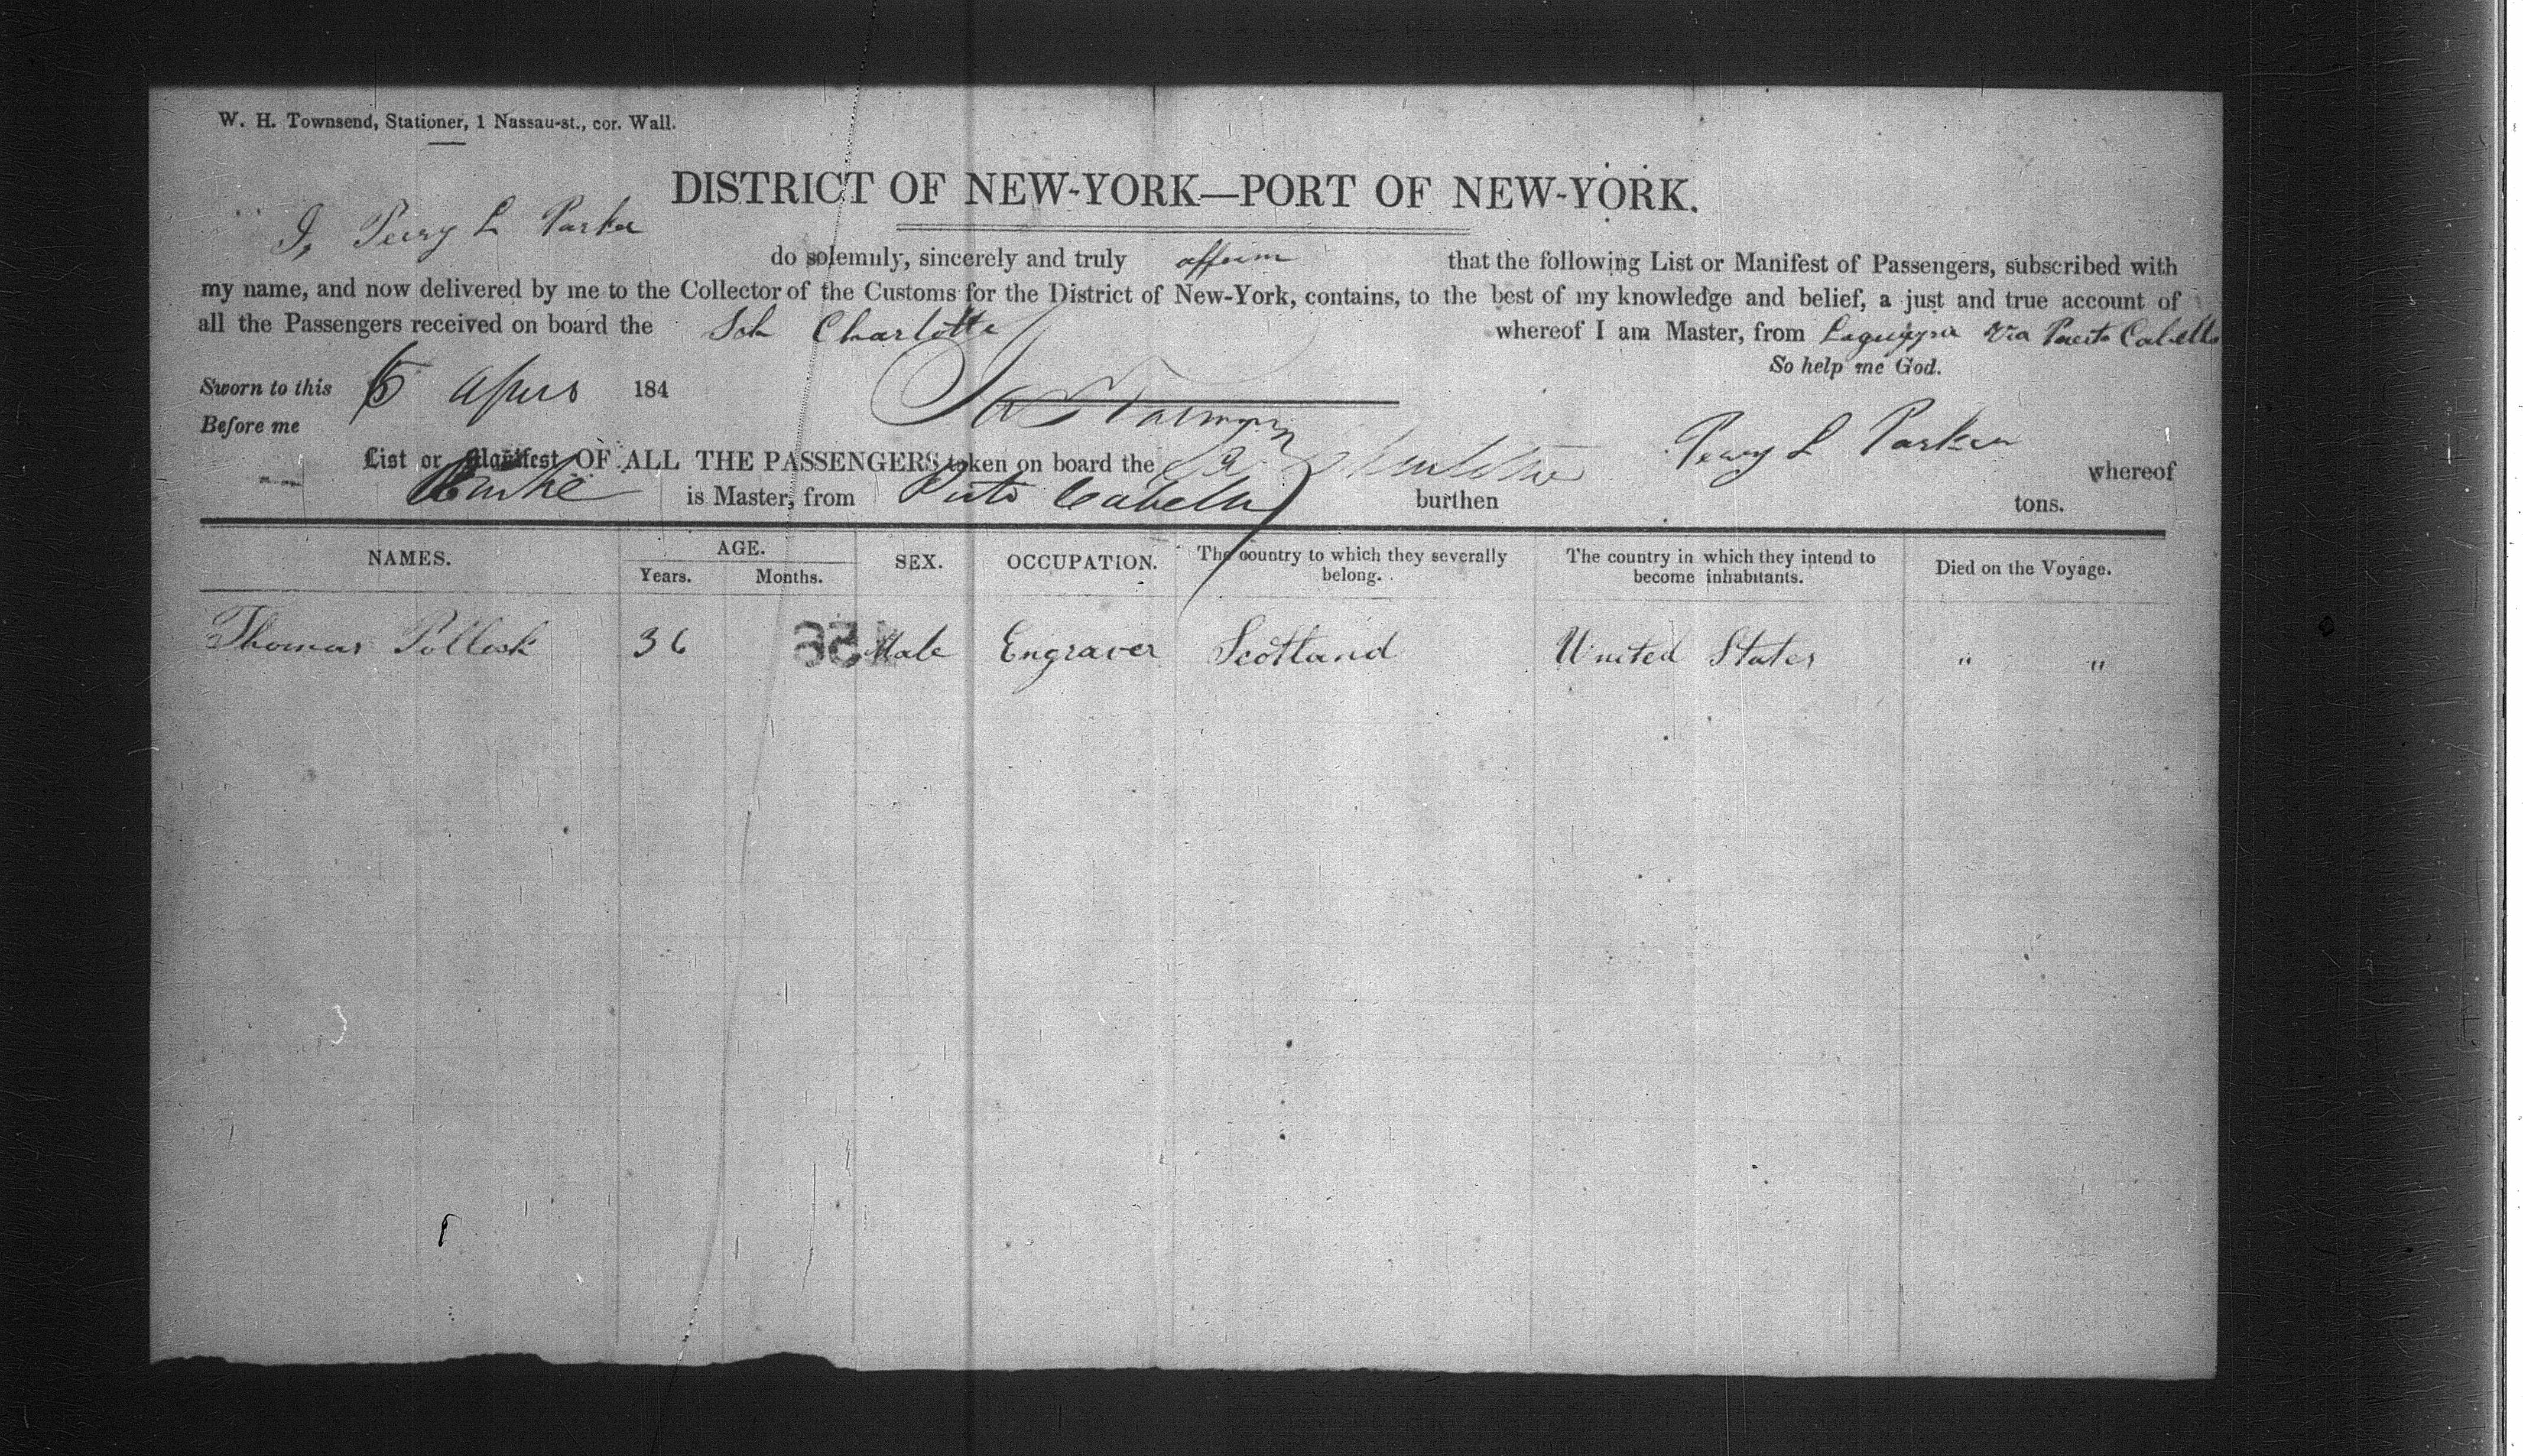 W. H. Townsend, Stationer, 1 Nassau-st., cor. Wall.
DISTRICT OF NEW-YORK—PORT OF NEW-YORK.
I, Perry L Parker
do solemnly, sincerely and truly affirm that the following List or Manifest of Passengers, subscribed with
my name, and now delivered by me to the Collector of the Customs for the District of New-York, contains, to the best of my knowledge and belief, a just and true account of
all the Passengers received on board the Sch Charlotte whereof I am Master, from Laguayra Via Puerto Cabello
So help me God.
Sworn to this 184
Before me
Perry L Parker
List or Manifest OF ALL THE PASSENGERS taken on board the Charlotte whereof
is Master, from Puerto Cabello burthen tons.
NAMES. AGE. SEX. OCCUPATION. The country to which they severally belong. The country in which they intend to become inhabitants. Died on the Voyage.
Years. Months.
Thomas Pollock 36 Male Engraver Scotland United States " "